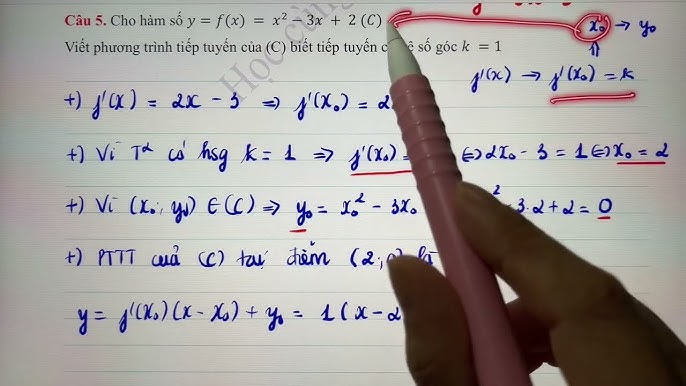 Câu 5. Cho hàm số y = f(x) = x² − 3x + 2 (C)
x₀ → y₀
Viết phương trình tiếp tuyến của (C) biết tiếp tuyến số góc k = 1
⇑
f'(x) → f'(x₀) = k
+) f'(x) = 2x - 3 ⇒ f'(x₀) = 2
+) Vì T² có hsg k = 1 ⇒ f'(x₀) = ⇔ 2x₀ - 3 = 1 ⇔ x₀ = 2
+) Vì (x₀; y₀) ∈ (C) ⇒ y₀ = x₀² - 3x₀ ² - 3.2 + 2 = 0
+) PTTT của (C) tại điểm (2; 0) là
y = f'(x₀)(x - x₀) + y₀ = 1(x - 2
Học cùng